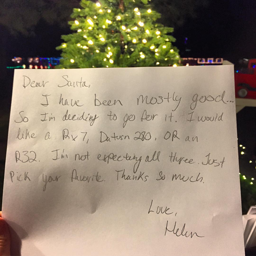 Dear Santa,
I have been mostly good...
So I'm deciding to go for it. I would
like a Rx7, Datsun 280, OR an
R32. I'm not expecting all three. Just
Pick your favorite. Thanks so much.
Love,
Helen